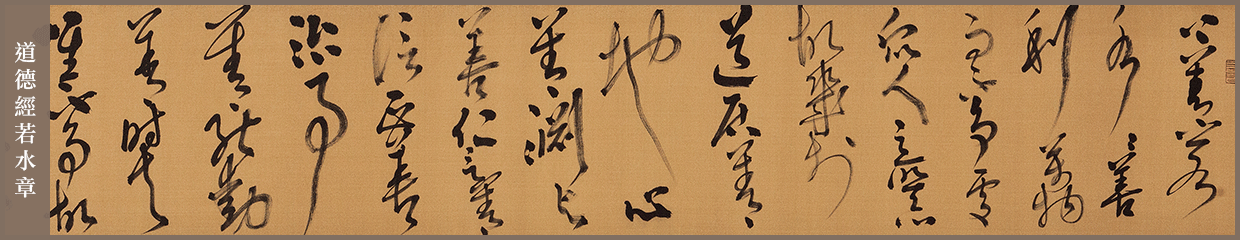 道德經若水章
上善若
水〻善
利萬物
而不爭處
衆人之所惡
故幾於
道居善
地心
善淵與
善仁言善
信正善
治事
善能動
善時夫
唯不爭故